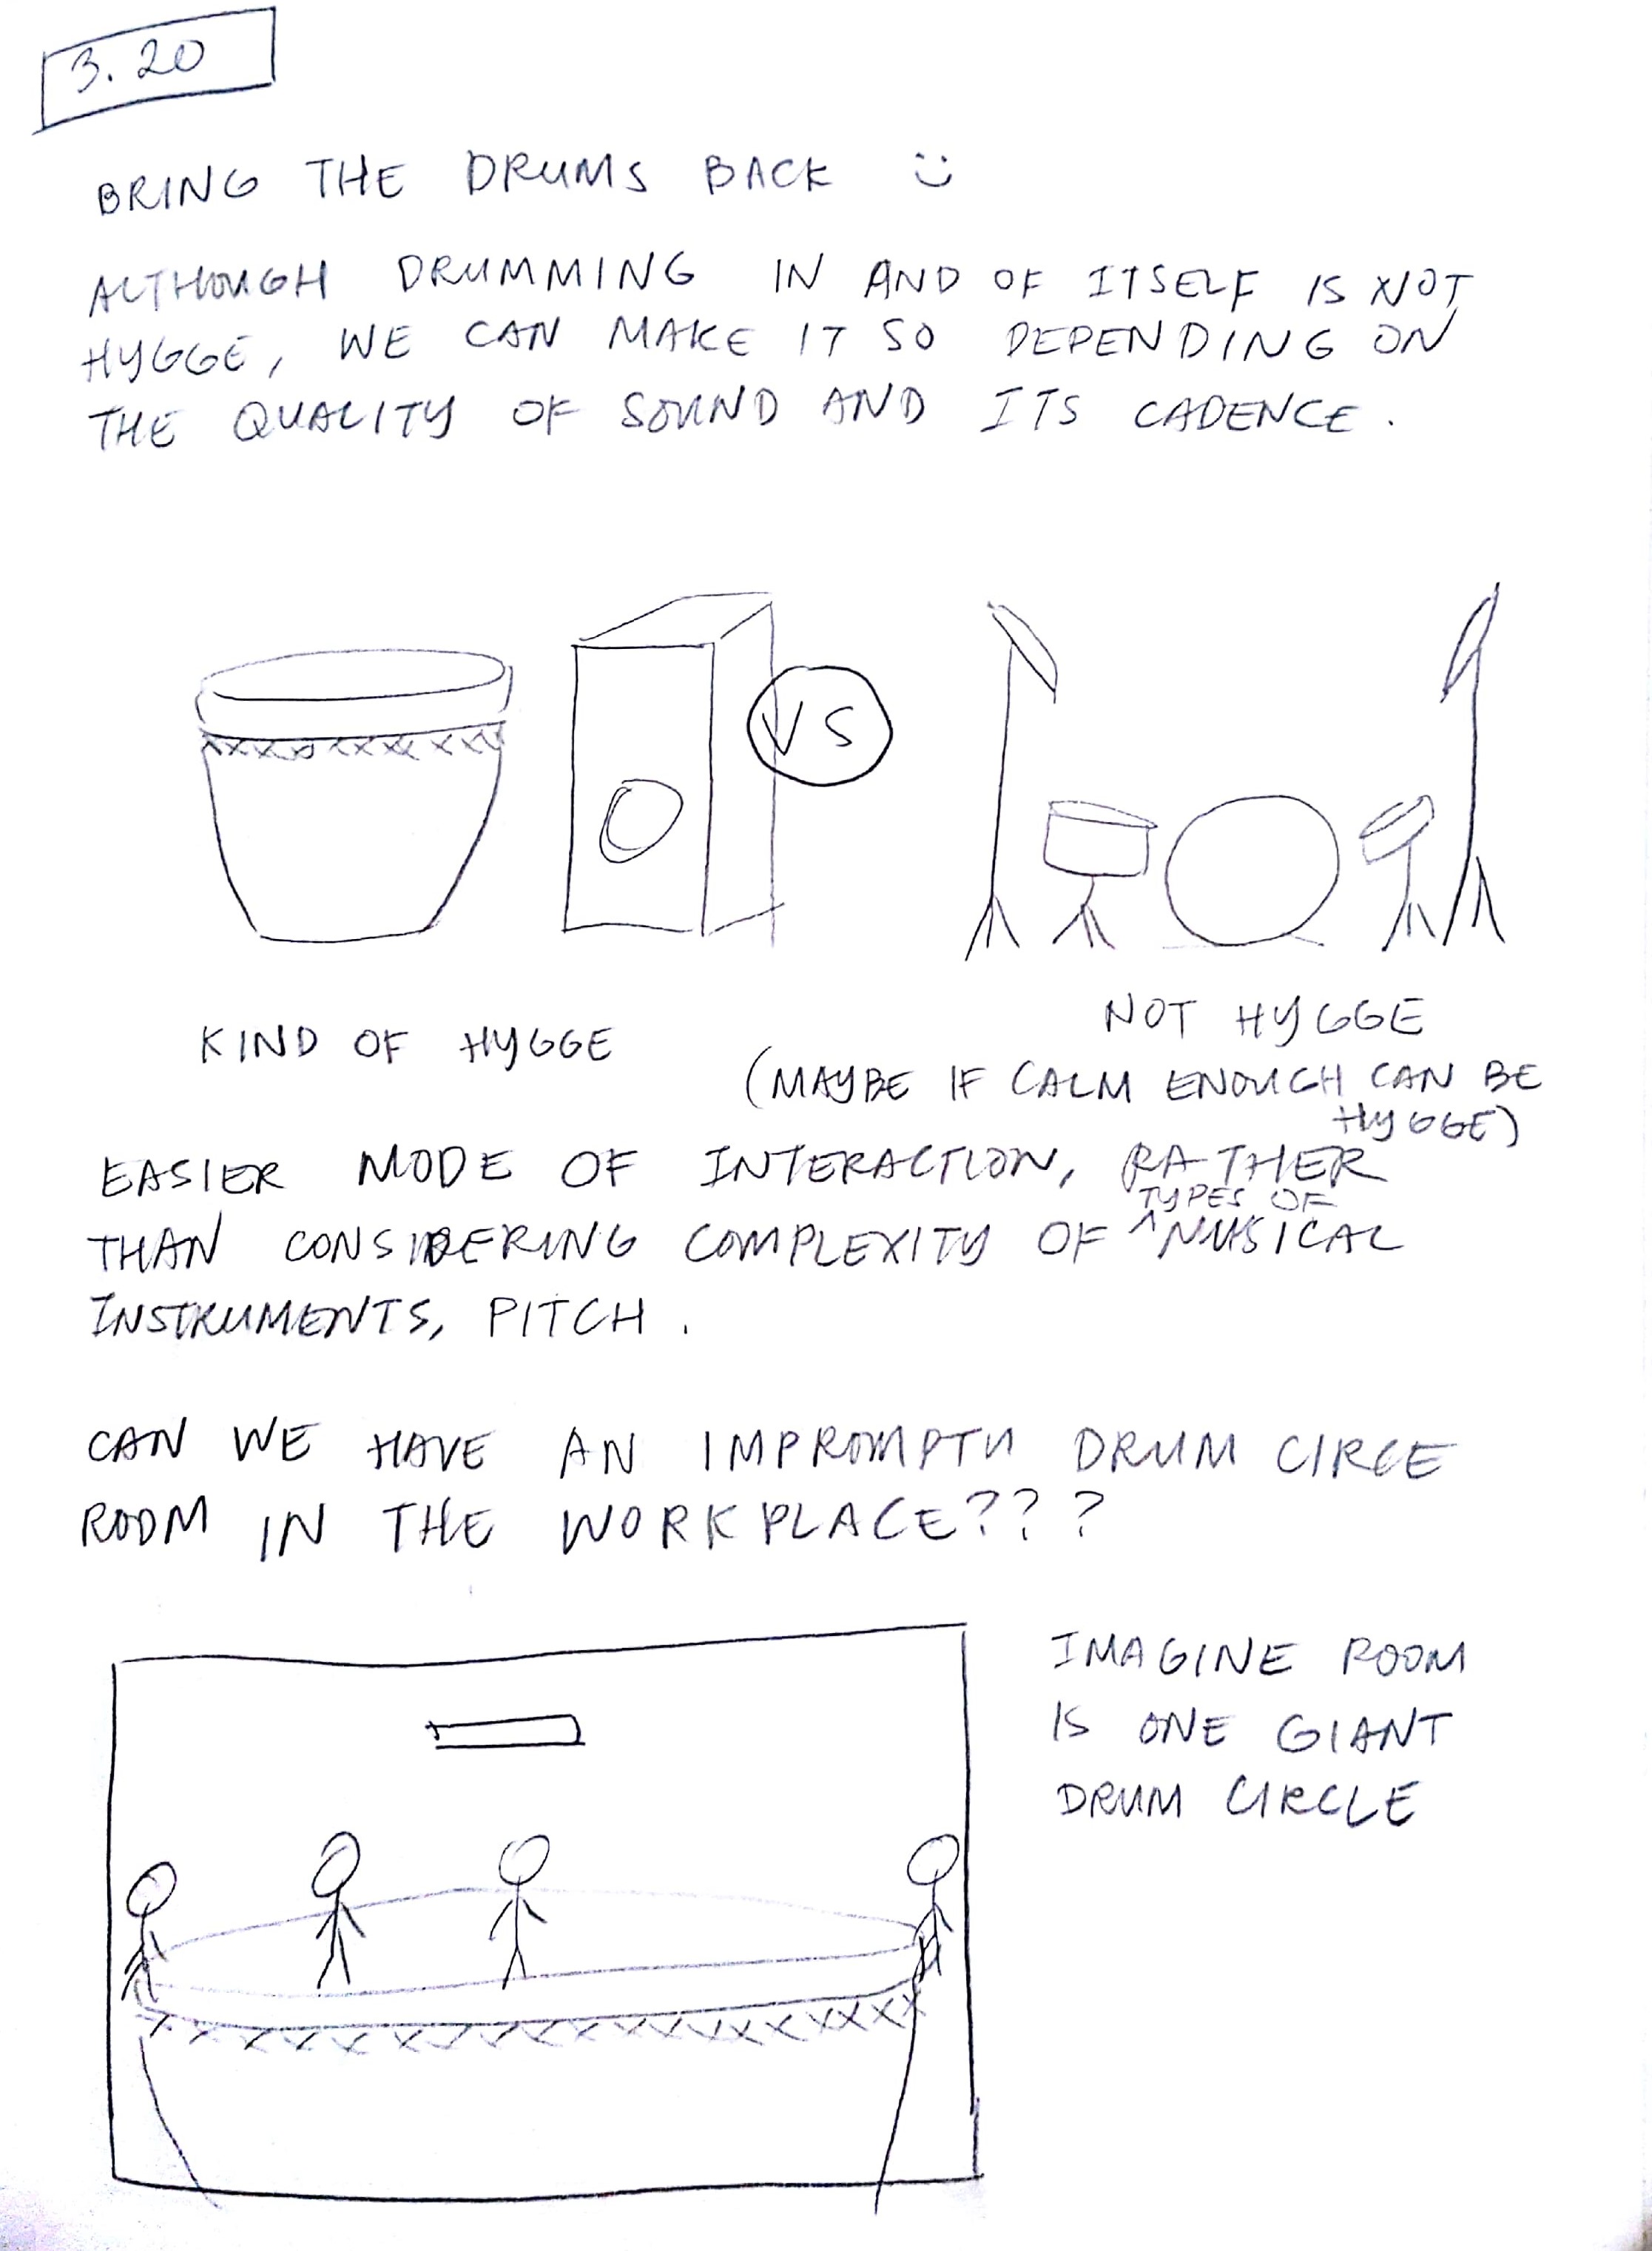 3.20
BRING THE DRUMS BACK :)
ALTHOUGH DRUMMING IN AND OF ITSELF IS NOT
HYGGE, WE CAN MAKE IT SO DEPENDING ON
THE QUALITY OF SOUND AND ITS CADENCE.
VS
KIND OF HYGGE
NOT HYGGE
(MAYBE IF CALM ENOUGH CAN BE
HYGGE)
EASIER MODE OF INTERACTION, RATHER
TYPES OF
THAN CONSIDERING COMPLEXITY OF ^MUSICAL
INSTRUMENTS, PITCH.
CAN WE HAVE AN IMPROMPTU DRUM CIRCE
ROOM IN THE WORKPLACE???
IMAGINE ROOM
IS ONE GIANT
DRUM CIRCLE